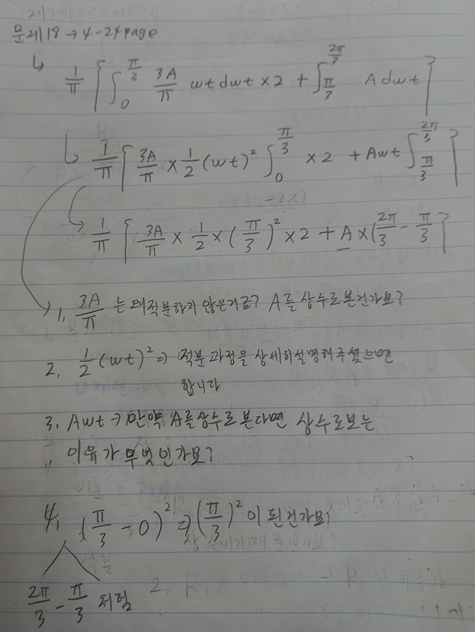 문제18 → 4-24page
↳ 1/π [ ∫_0^{π/3} 3A/π wt dwt × 2 + ∫_{π/3}^{2π/3} A dwt ]
↳ 1/π [ 3A/π × 1/2 (wt)² ∫_0^{π/3} × 2 + Awt ∫_{π/3}^{2π/3} ]
↳ 1/π [ 3A/π × 1/2 × (π/3)² × 2 + A × (2π/3 - π/3 ]
1. 3A/π 는 왜 적분하지 않은거죠? A를 상수로 본건가요?
2. 1/2 (wt)² ⇒ 적분 과정을 상세히 설명해 주셨으면
합니다
3. Awt → 만약 A를 상수로 본다면 상수로보는
이유가 무엇인가요?
4. (π/3 - 0)² ⇒ (π/3)² 이 된건가요?
2π/3 - π/3 처럼